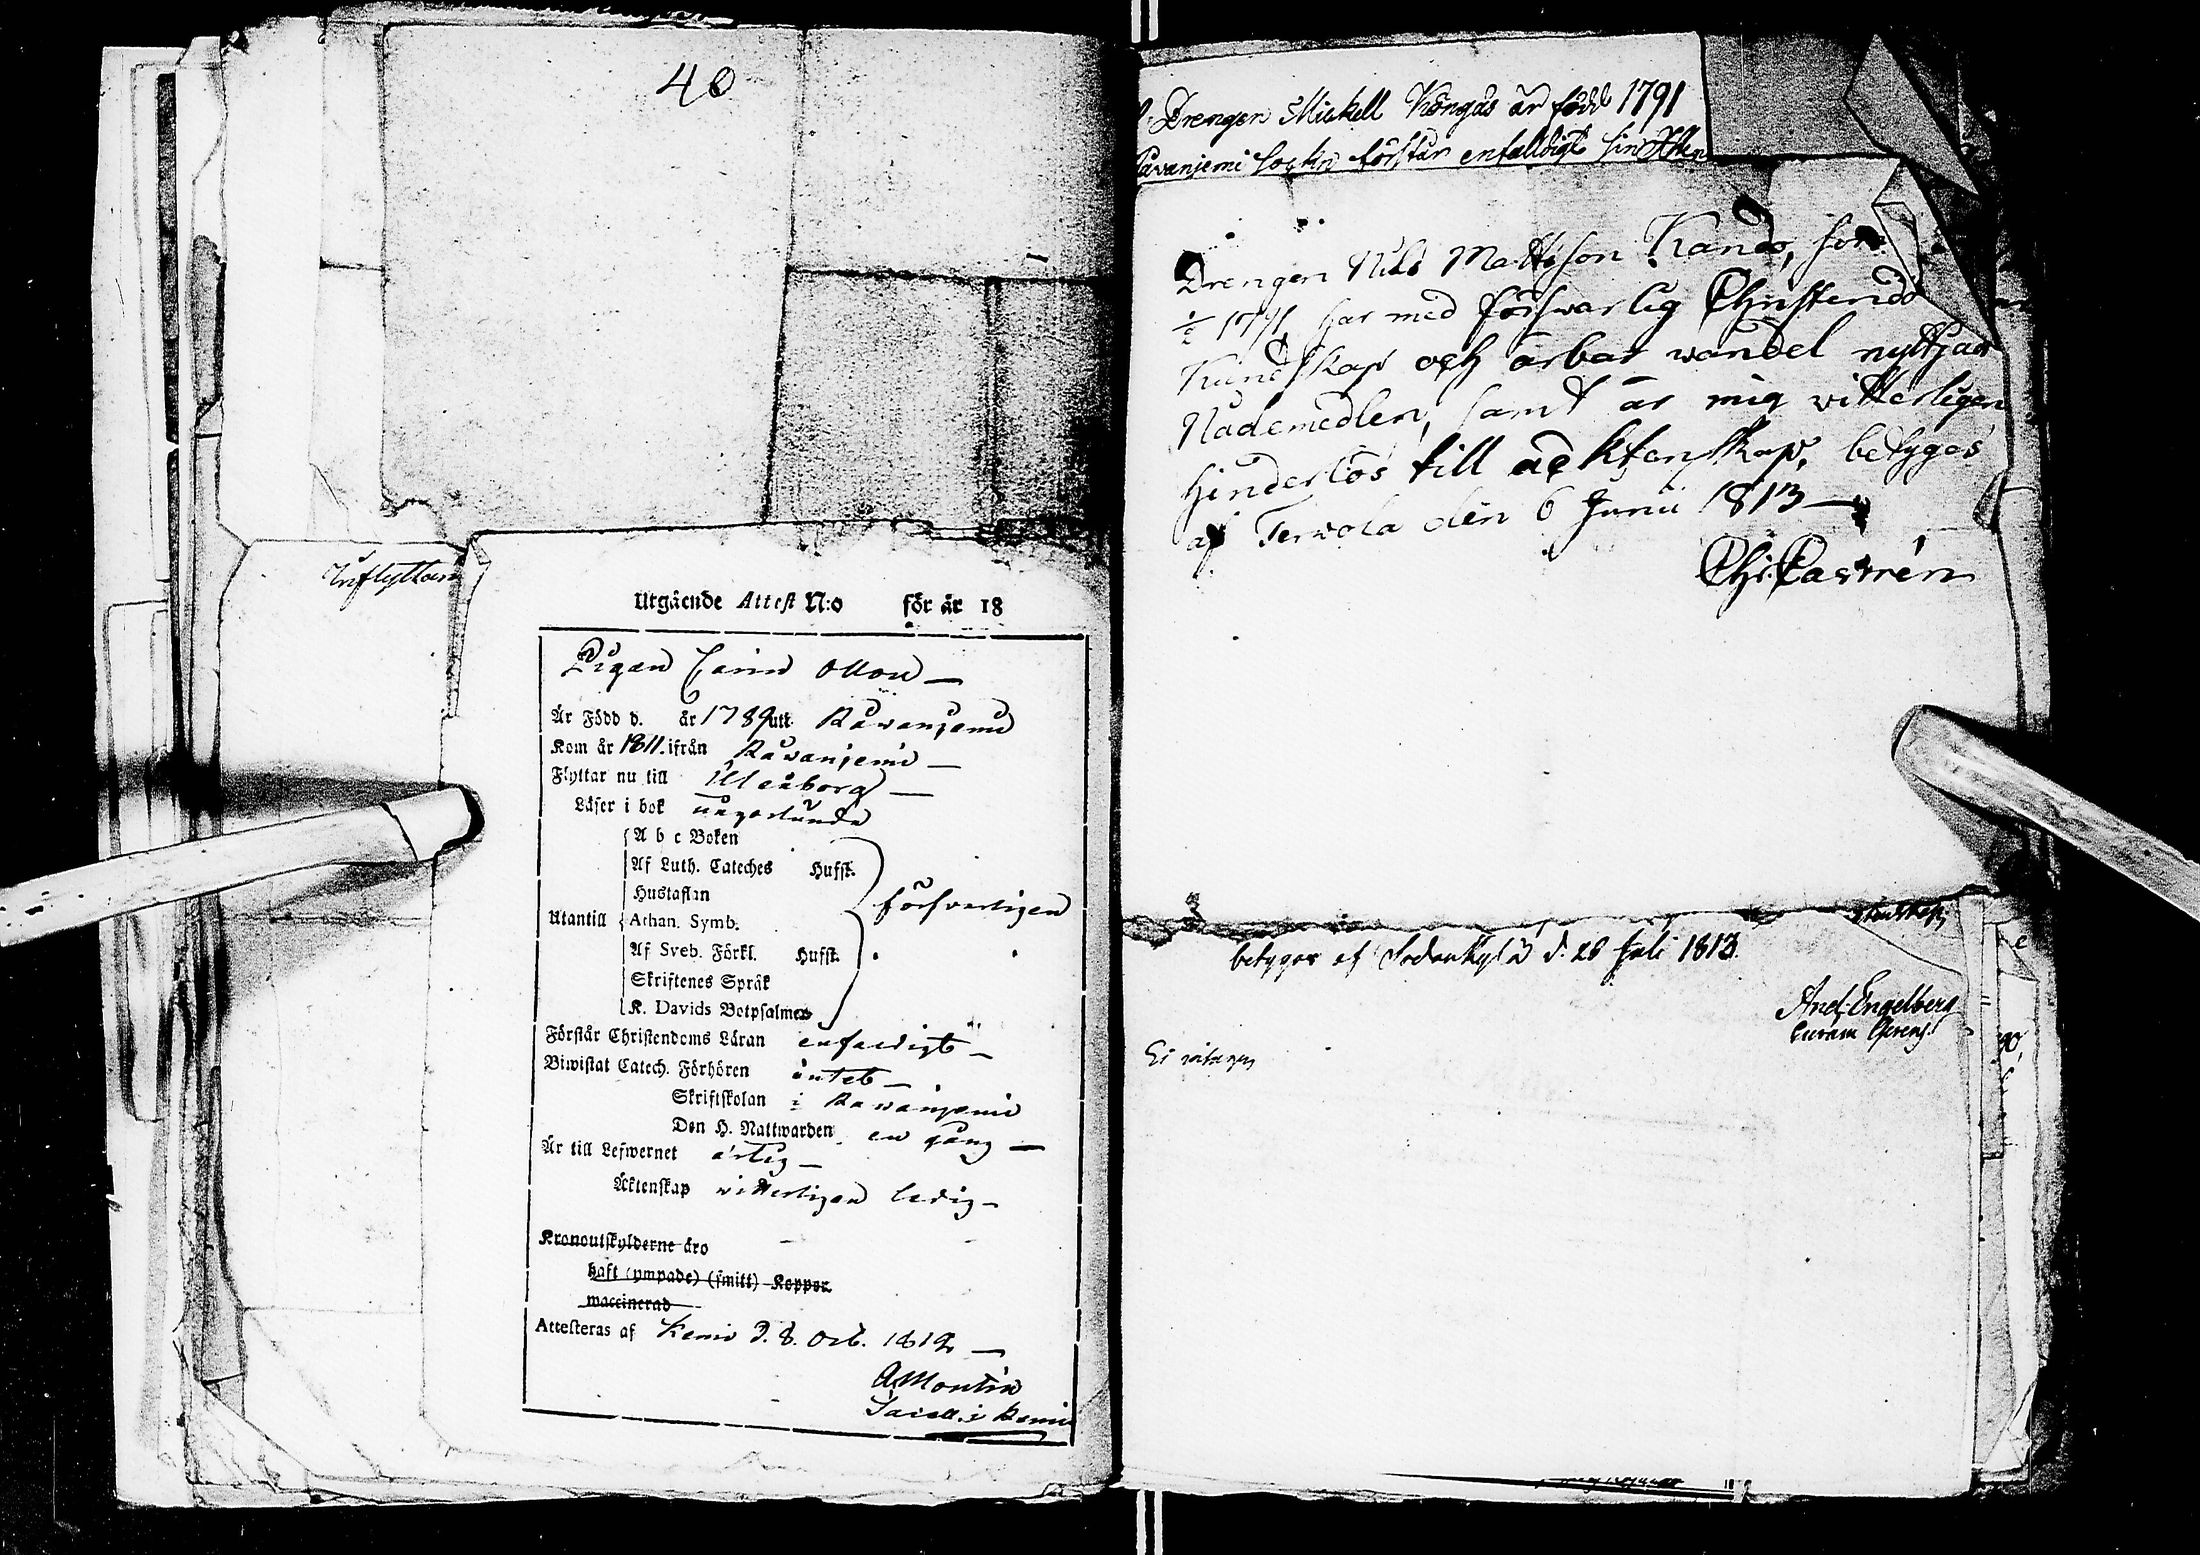 40
Inflyttan
Utgående Attest N:o för år 18
Pigan Carin Otton —
Är Född d. år 1789 uti Råwanjemi
Kom år 1811. ifrån Råvanjemi —
Flyttar nu till Uleåborg —
Läser i bok någorlunda
A b c Boken
Af Luth. Cateches Hufst.
Hustaflan
Utantill Athan. Symb. försvarligen
Af Sveb. Förkl. Hufst.
Skriftenes Språk
K. Davids Botpsalmer
Förstår Christendoms Läran enfaldigt —
Biwistat Catech. Förhören
Skriftskolan i Rawanjemi
Den H. Nattwarden en gång —
Är till Lefwernet ärlig —
Äktenskap witterligen ledig —
Kronoutskylderne äro
haft (ympade) (smitt) Koppor
waccinerad
Attesteras af Kemi d. 8. Oct. 1812 —
A Montin
Sacell. i Kemi
Drengen Mickell Köngäs är född 1791
Råvanjemi sockn förstår enfalldigt sin
Drengen Nils Mattsson Kando, som
1791, har med förswarlig Christendo
Kundskap och ärbar wandel nyttjat
Nådemedlen, samt är mig witterligen
hinderlös till äcktenskap, betygas
af Terwola den 6 Junii 1813 —
Chr. Castrén
betygar af Sodankylä d. 28 Juli 1813.
And. Engelberg
Ei